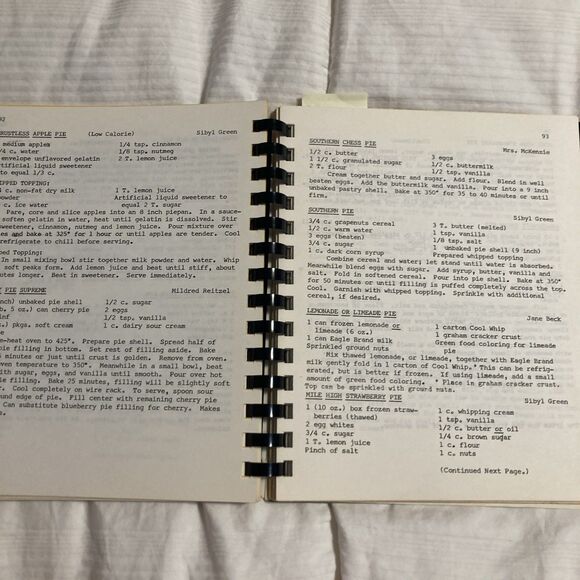 92
RUSTLESS APPLE PIE (Low Calorie) Sibyl Green
medium apples 1/4 tsp. cinnamon
/4 c. water 1/8 tsp. nutmeg
envelope unflavored gelatin 2 T. lemon juice
rtificial liquid sweetener
to equal 1/3 c.
IPPED TOPPING:
c. non-fat dry milk 1 T. lemon juice
powder Artificial liquid sweetener to
c. ice water equal 2 T. sugar
Pare, core and slice apples into an 8 inch piepan. In a sauce-
soften gelatin in water, heat until gelatin is dissolved. Stir
sweetener, cinnamon, nutmeg and lemon juice. Pour mixture over
es and bake at 325° for 1 hour or until apples are tender. Cool
refrigerate to chill before serving.
ped Topping:
In small mixing bowl stir together milk powder and water, Whip
soft peaks form. Add lemon juice and beat until stiff, about
utes. Beat in sweetener. Serve immediately.
Y PIE SUPREME Mildred Reitzel
inch) unbaked pie shell 1/2 c. sugar
b. 5 oz.) can cherry pie 2 eggs
1/2 tsp. vanilla
oz.) pkgs. soft cream 1 c. dairy sour cream
e-heat oven to 425°. Prepare pie shell. Spread half of
pie filling in bottom. Set rest of filling aside. Bake
5 minutes or just until crust is golden. Remove from oven.
oven temperature to 350°. Meanwhile in a small bowl, beat
with sugar, eggs, and vanilla until smooth. Pour over hot
pie filling. Bake 25 minutes, filling will be slightly soft
. Cool completely on wire rack. To serve, spoon sour
ound edge of pie. Fill center with remaining cherry pie
Can substitute blueberry pie filling for cherry. Makes
s.
93
SOUTHERN CHESS PIE Mrs. McKenzie
1/2 c. butter 3 eggs
1 1/2 c. granulated sugar 1/2 c. buttermilk
2 T. flour 1/2 tsp. vanilla
Cream together butter and sugar. Add flour. Blend in well
beaten eggs. Add the buttermilk and vanilla. Pour into a 9 inch
unbaked pastry shell. Bake at 350° for 35 to 40 minutes or until
firm.
SOUTHERN PIE Sibyl Green
3/4 c. grapenuts cereal 3 T. butter (melted)
1/2 c. warm water 1 tsp. vanilla
3 eggs (beaten) 1/8 tsp. salt
3/4 c. sugar 1 unbaked pie shell (9 inch)
1 c. dark corn syrup Prepared whipped topping
Combine cereal and water; let stand until water is absorbed.
Meanwhile blend eggs with sugar. Add syrup, butter, vanilla and
salt. Fold in softened cereal. Pour into pie shell. Bake at 350°
for 50 minutes or until filling is puffed completely across the top.
Cool. Garnish with whipped topping. Sprinkle with additional
cereal, if desired.
LEMONADE OR LIMEADE PIE Jane Beck
1 can frozen lemonade or 1 carton Cool Whip
limeade (6 oz.) 1 graham cracker crust
1 can Eagle Brand milk Green food coloring for limeade
Sprinkled ground nuts pie
Mix thawed lemonade, or limeade, together with Eagle Brand
milk gently fold in 1 carton of Cool Whip. This can be refrig-
erated, but is better if frozen. If using limeade, add a small
amount of green food coloring. Place in graham cracker crust.
Top can be sprinkled with ground nuts.
MILE HIGH STRAWBERRY PIE Sibyl Green
1 (10 oz.) box frozen straw- 1 c. whipping cream
berries (thawed) 1 tsp. vanilla
2 egg whites 1/2 c. butter or oil
3/4 c. sugar 1/4 c. brown sugar
1 T. lemon juice 1 c. flour
Pinch of salt 1 c. nuts
(Continued Next Page.)